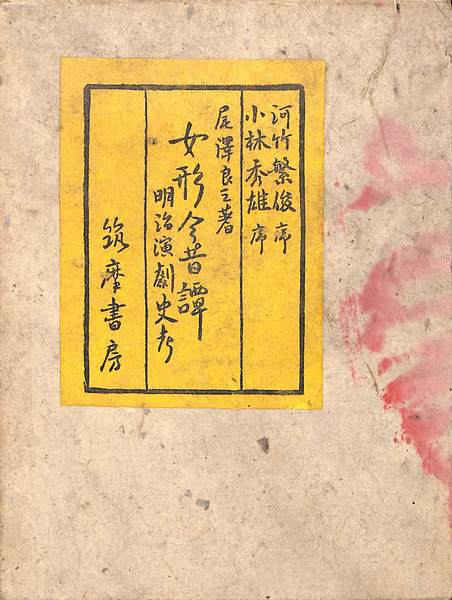 河竹繁俊 序
小林秀雄 序
尾澤良三著
女形今昔譚
明治演劇史考
筑摩書房